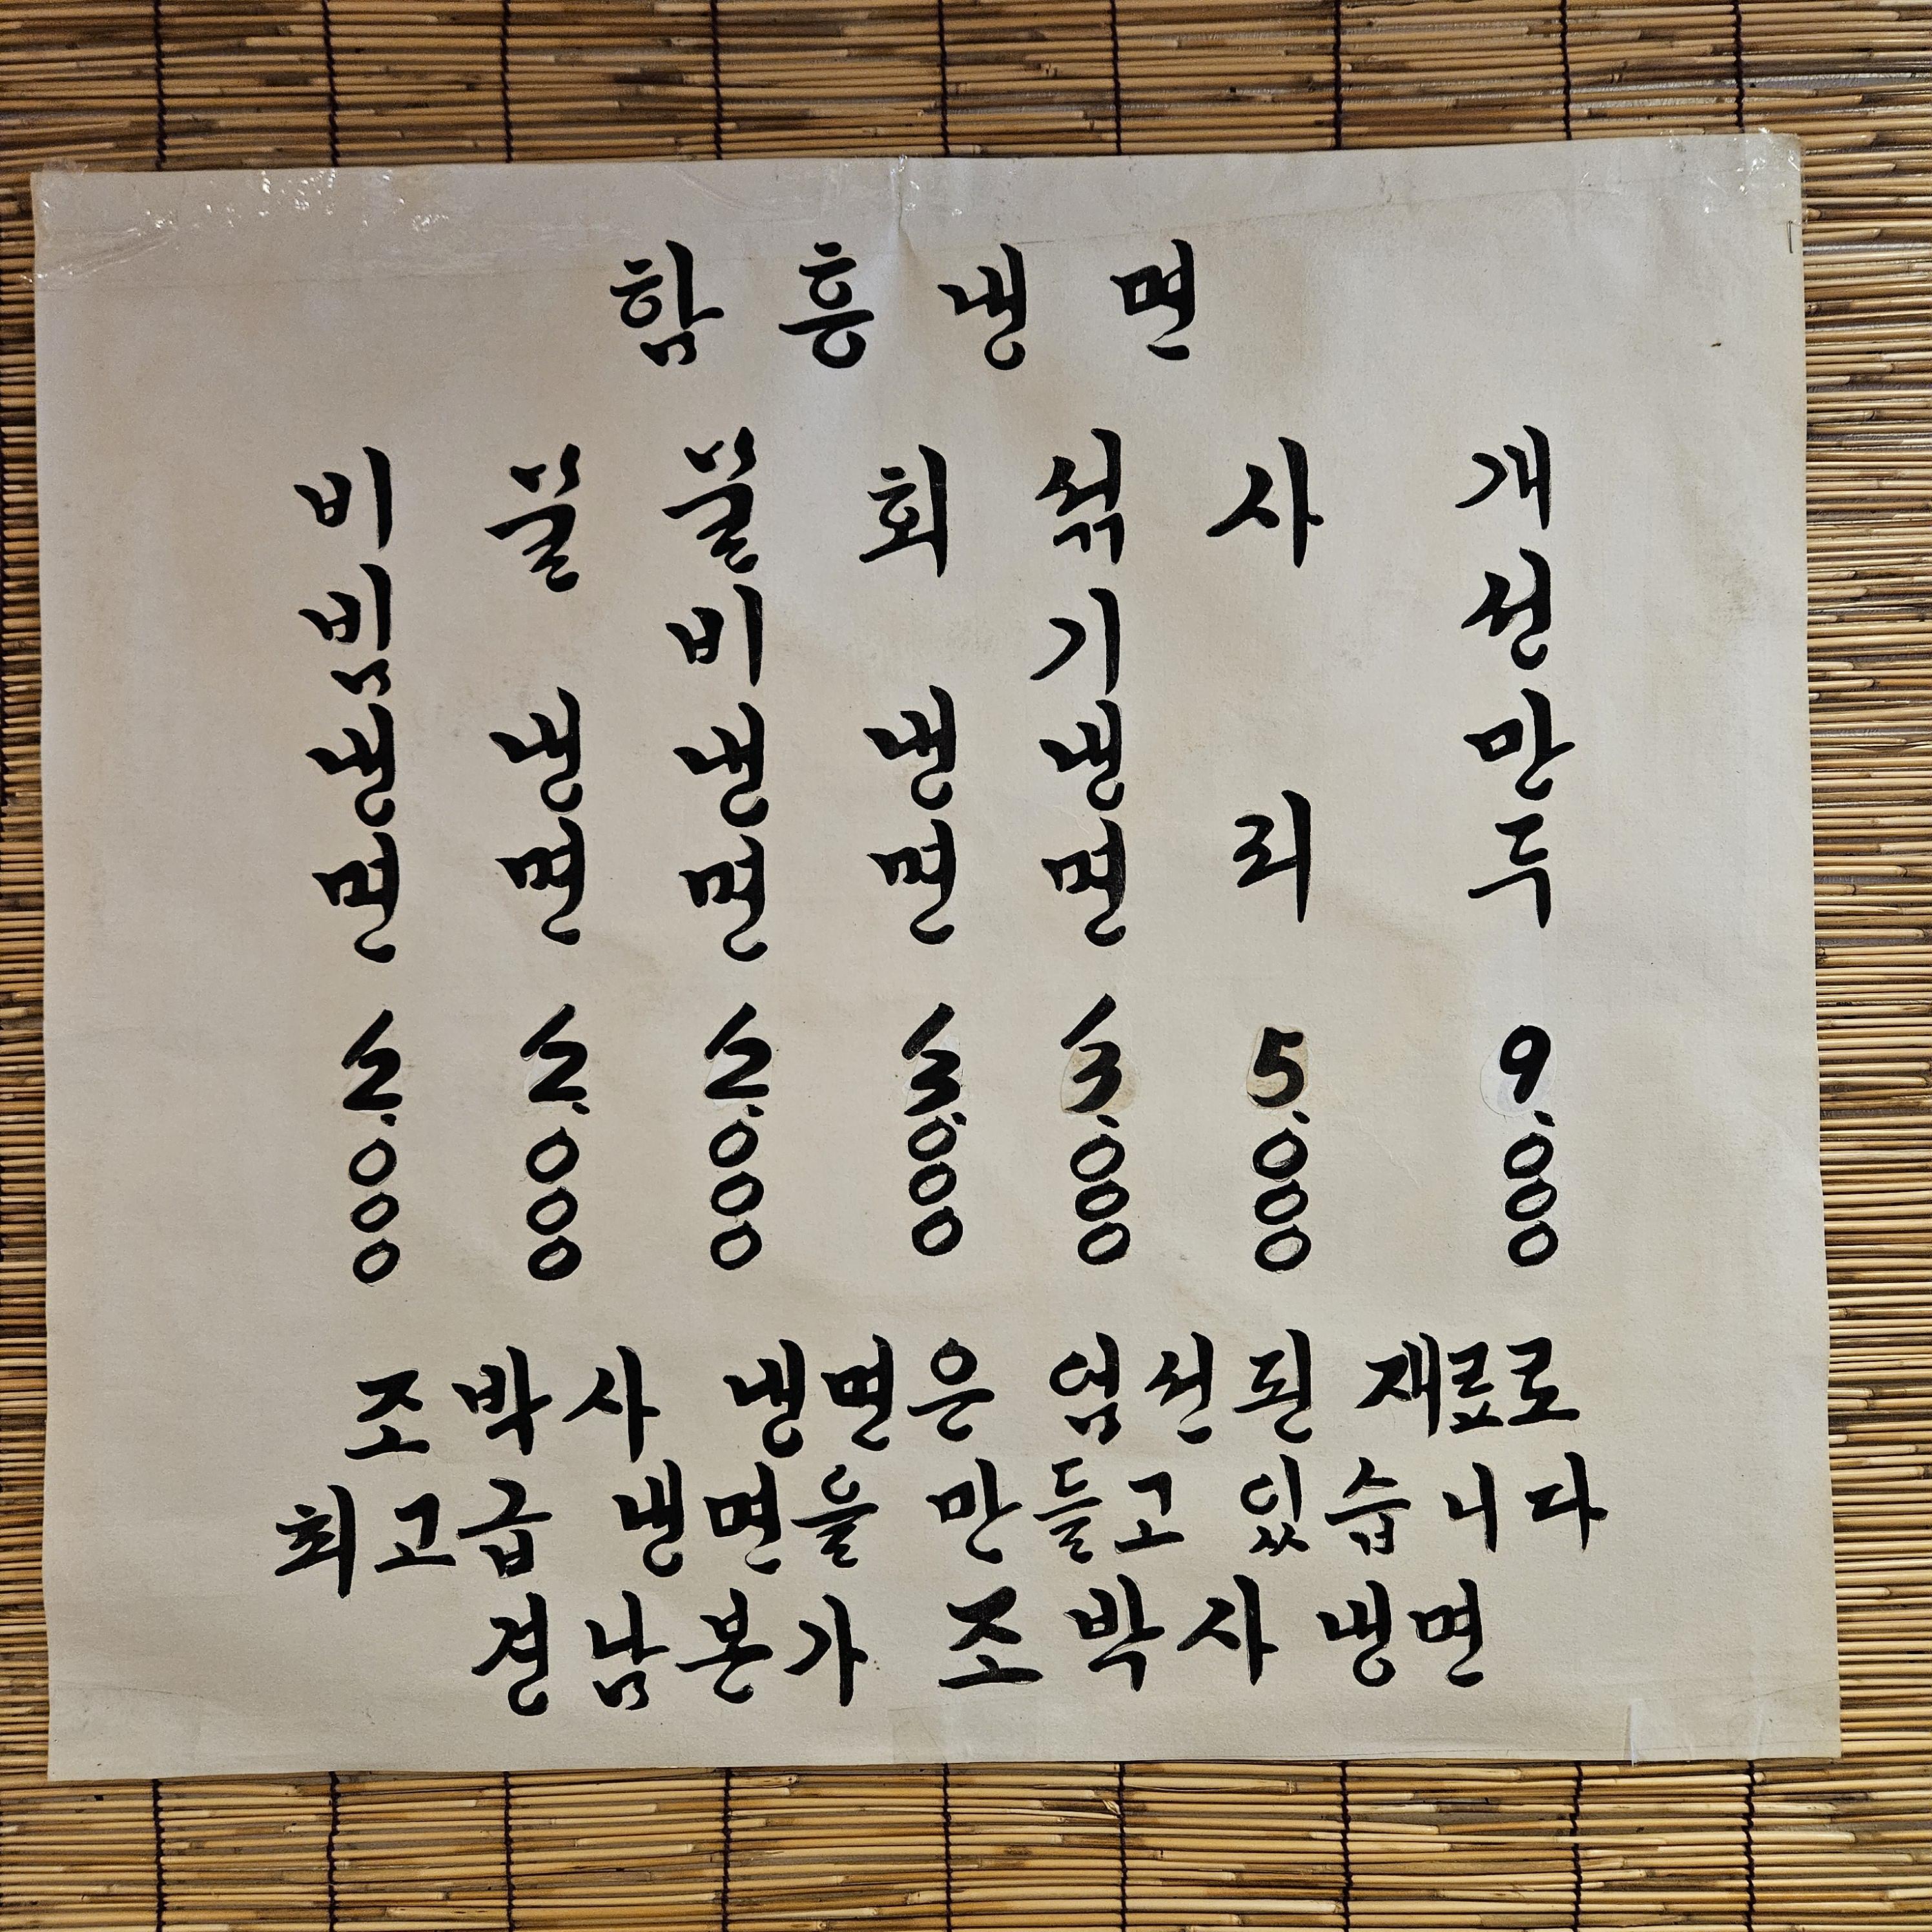 함흥냉면
비빔냉면 12.000
물냉면 12.000
물비냉면 12.000
회냉면 13.000
섞기냉면 13.000
사리 5.000
개선만두 9.000
조박사 냉면은 엄선된 재료로
최고급 냉면을 만들고 있습니다
경남본가 조박사냉면